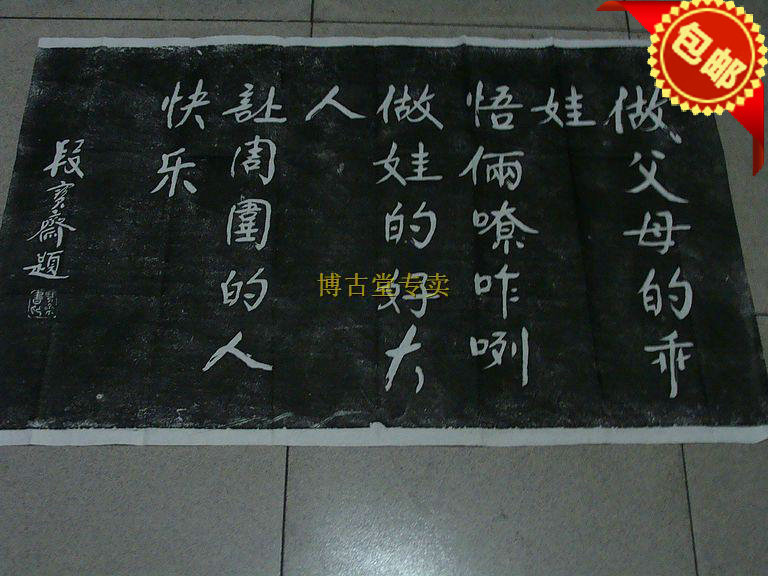 包邮
做父母的乖
娃
悟倆嘹咋咧
做娃的好大
人
让周圍的人
快乐
段寳齋題
博古堂专卖